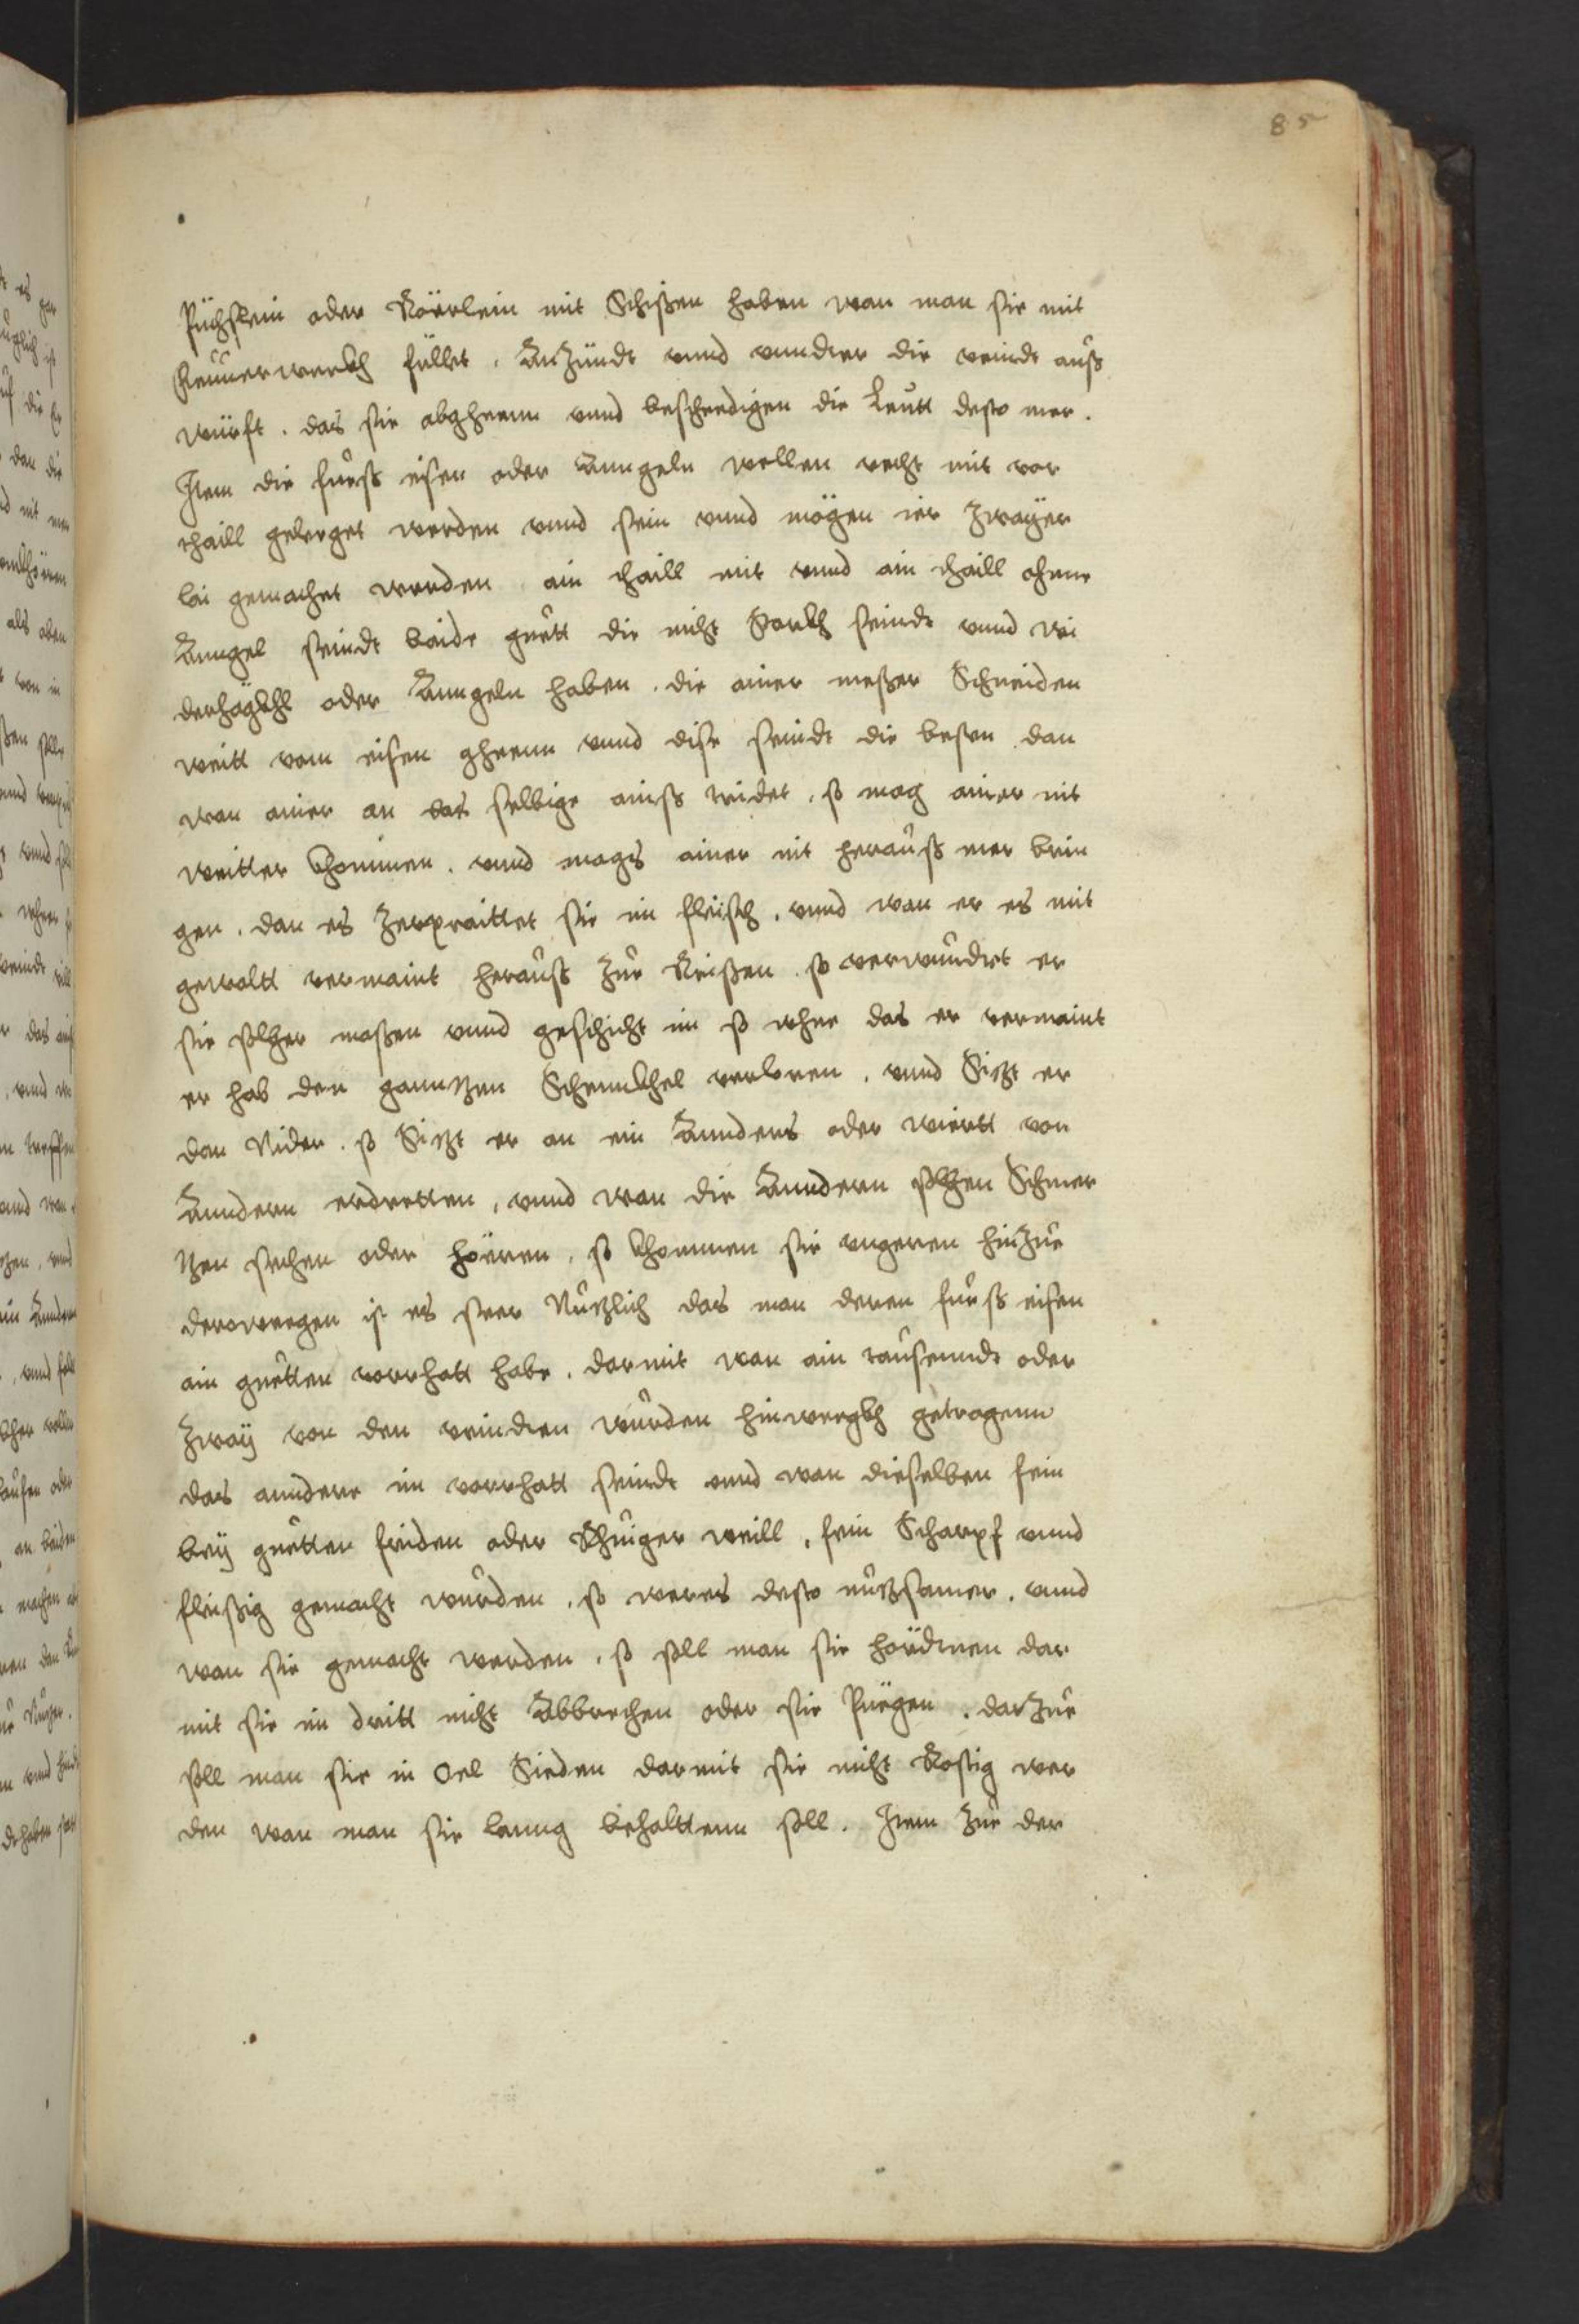 85
Püchslein oder Röerlein mit Schißen haben wan man sie mit
feuuerwerkh füllet. Anzündt vnnd vnndter die veindt auß
würft. das sie abgheenn vnnd beschedigen die Leutt desto mer.
Item die fueß eisen oder Anngeln wellen recht mit vor
thaill geleeget werden vnnd sein vnnd mögen ier zwaÿer
lai gemachet werden ain thaill mit vnnd ain thaill ohnne
Anngel seindt baide guett die nicht starkh seindt vnnd wi
derhägkhl oder Anngeln haben. die ainer meßer Schneiden
weitt vom eisen gheenn vnnd dise seindt die besten dan
wan ainer an das selbige ainß tridet. so mag ainer nit
weitter khommen. vnnd mags ainer nit herauß mer brin
gen. dan es zerpraittet sie im fleisch. vnnd wan er es mit
gewaltt vermaint herauß zue Reißen. so verwundtet er
sie solcher maßen vnnd geschicht im so whee das er vermaint
er hab den ganntzen Schennkhel verloren. vnnd Sitzt er
dan Nider. so Sitzt er an ein Annders oder wiertt von
Anndern erdretten, vnnd wan die Anndern solchen Schmer
tzen sechen oder höeren. so khommen sie vngeren hinzue
derowegen ist es seer Nutzlich das man deren fueß eisen
ain guetten vorrhatt habe. darmit wan ain tausenndt oder
zwaÿ von den veindten wurden hinwegkh getragenn
das anndere im vorrhatt seindt vnnd wan dieselben fein
beÿ guetten friden oder Rhuiger weill, fein Scharpf vnnd
fleißig gemacht wurden. so weres desto nutzsamer. vnnd
wan sie gemacht werden. so soll man sie hördtnen dar
mit sie im dritt nicht Abbrechen oder sie Puegen. darzue
soll man sie in Oel Sieden darmit sie nicht Rostig wer
den wan man sie lanng behalttenn soll. Item zue der